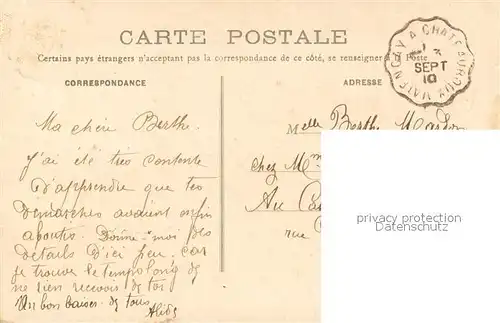 CARTE POSTALE
Certains pays étrangers n'acceptant pas la correspondance de ce côté, se renseigner à la Poste
CORRESPONDANCE
ADRESSE
VALENÇAY A CHATEAUROUX
SEPT
10
Ma chère Berthe.
J'ai été très contente
D'apprendre que tes
Démarches avaient enfin
aboutis. Donne-moi des
details D'ici peu. car
je trouve le temps long de
ne rien recevoir de toi
Un bon baiser de tous
Melle Berthe
chez Mme
Au
rue
privacy protection
Datenschutz